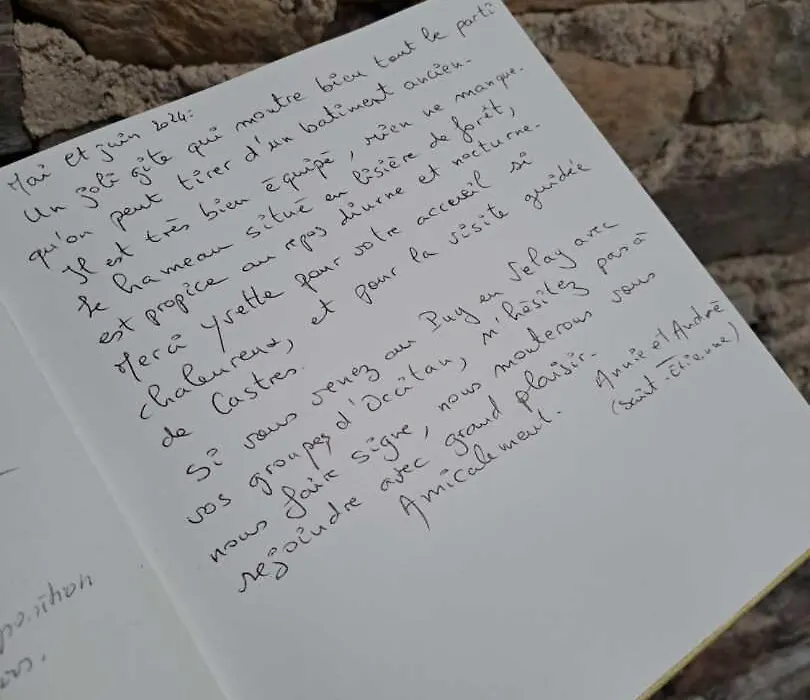 Mai et juin 2024:
Un joli gîte qui montre bien tout le parti
qu'on peut tirer d'un batiment ancien.
Il est très bien équipé, rien ne manque.
Le hameau situé en lisière de forêt,
est propice au repos diurne et nocturne.
Merci Yvette pour votre accueil si
chaleureux, et pour la visite guidée
de Castres.
Si vous venez au Puy en Velay avec
vos groupes d'Occitan, n'hésitez pas à
nous faire signe, nous monterons vous
rejoindre avec grand plaisir.
Amicalement. Annie et André
(Saint-Etienne)